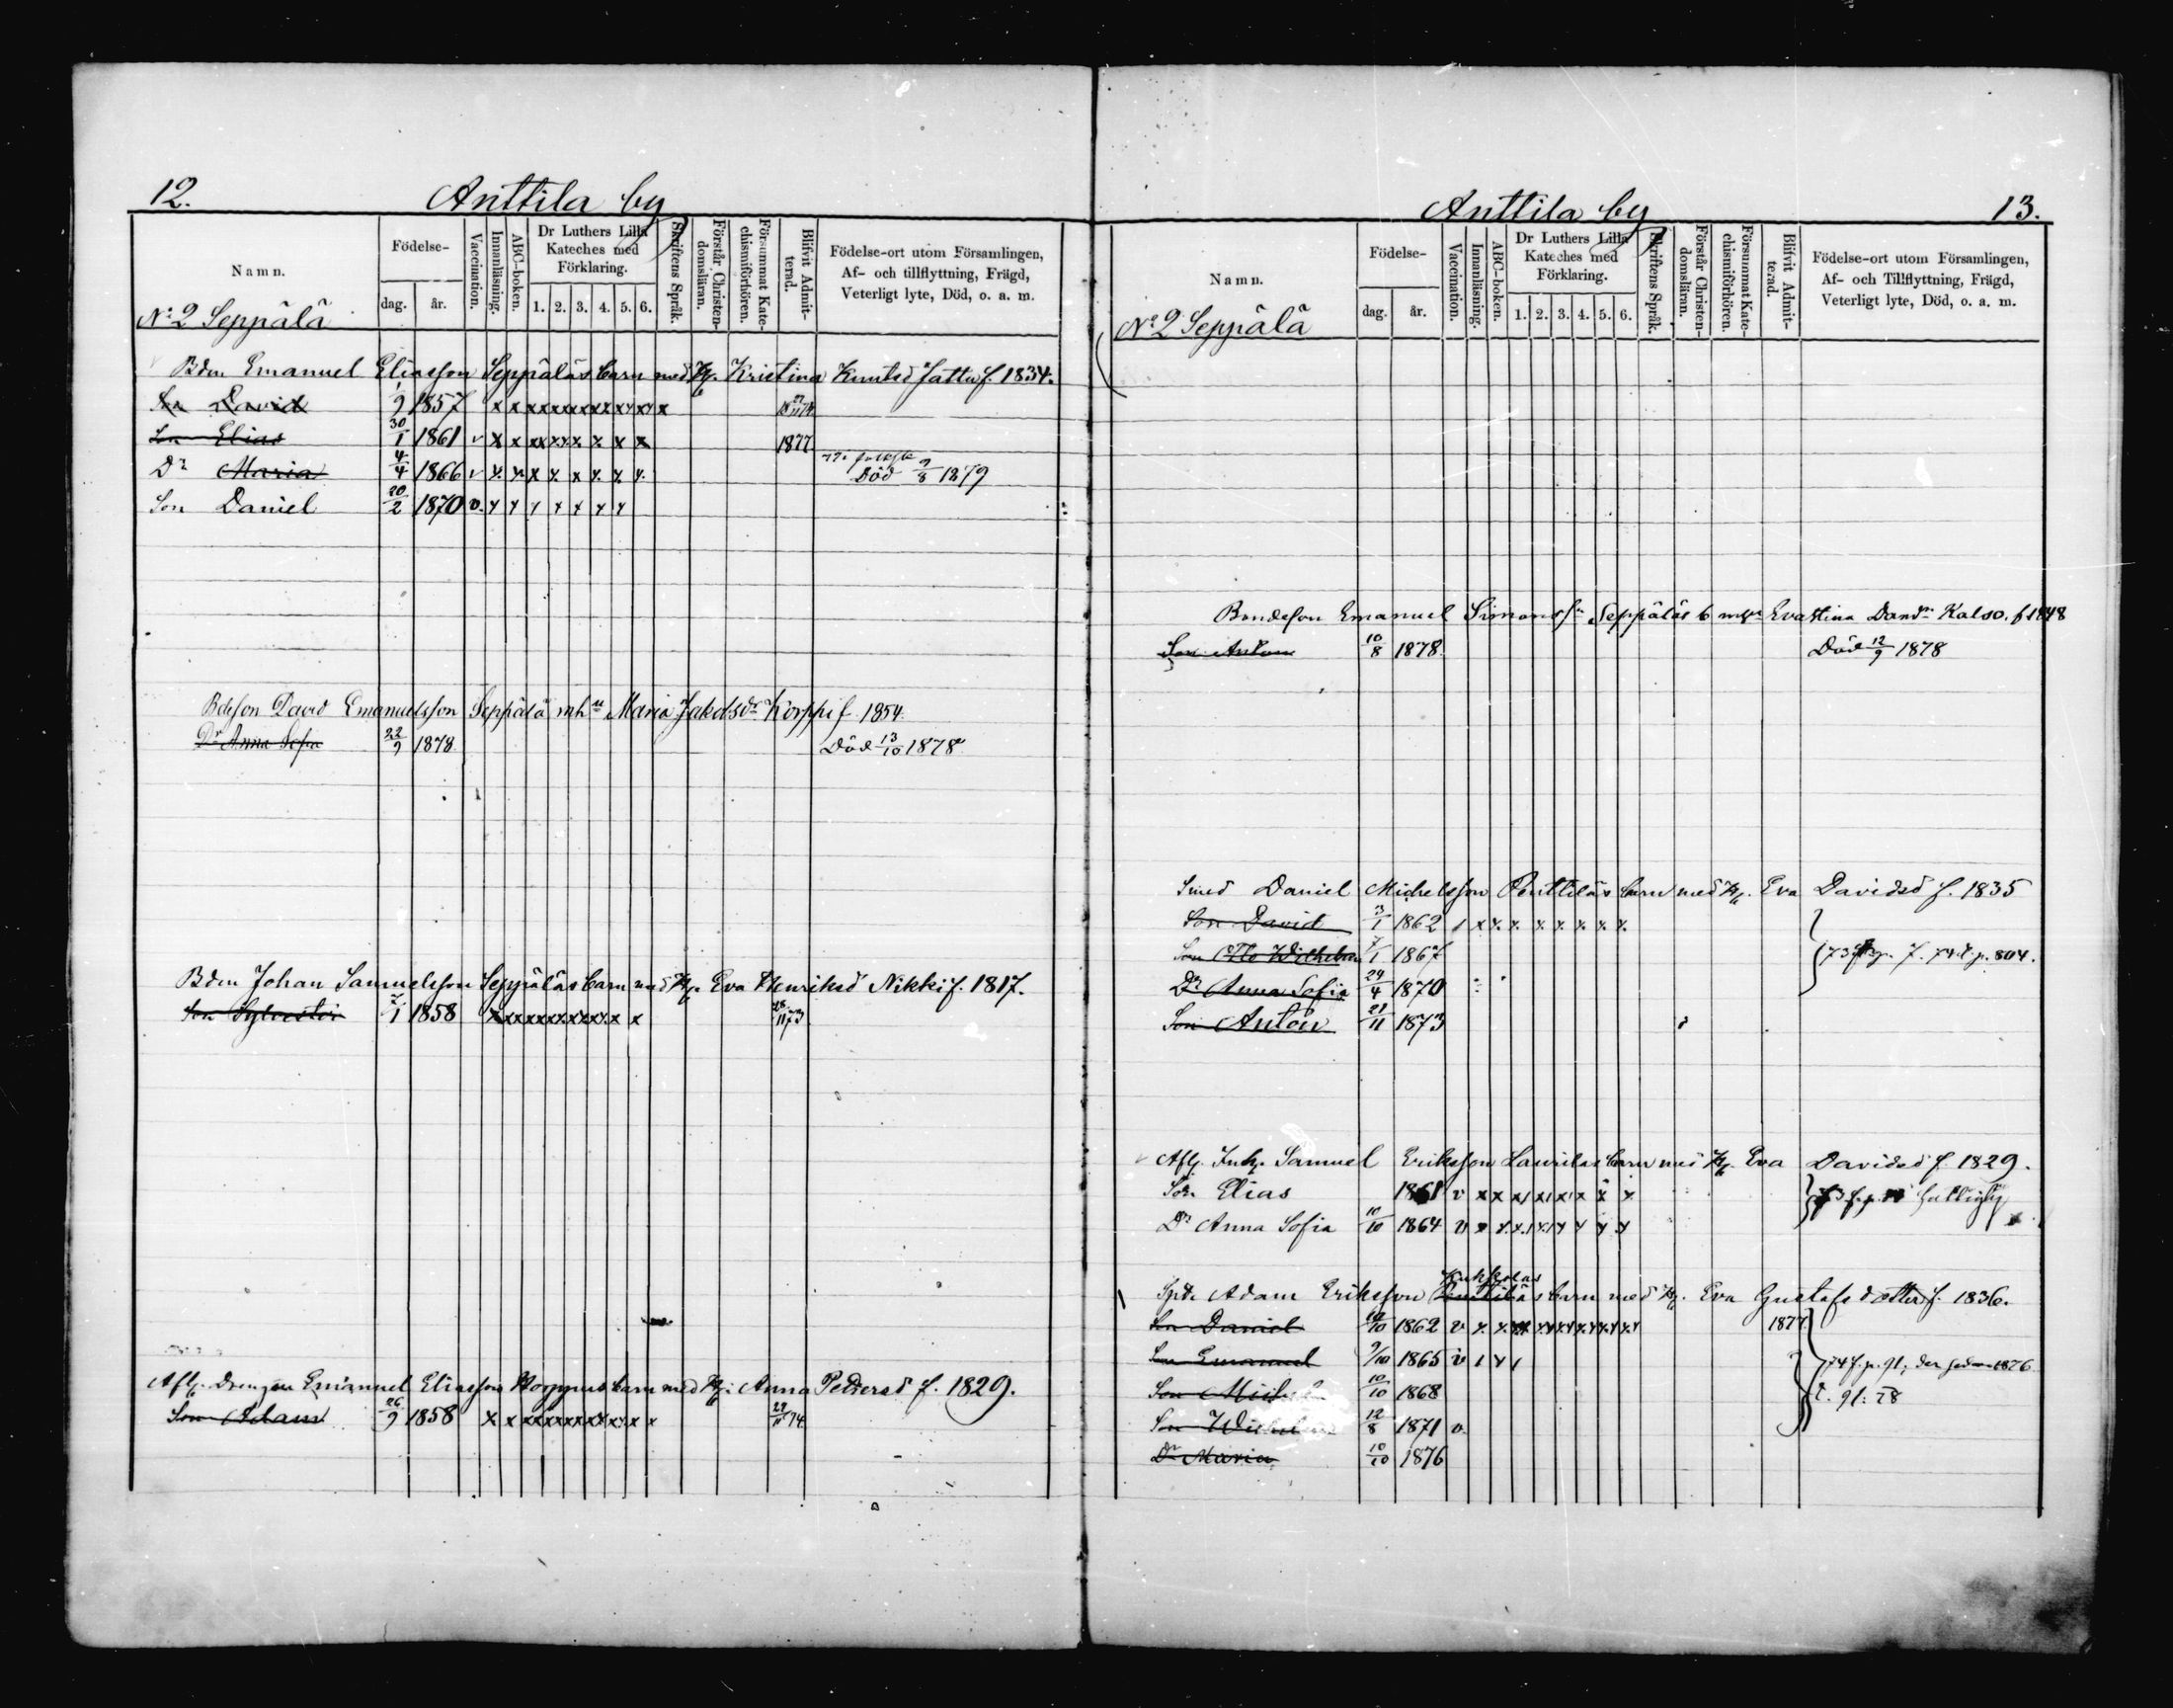 12.
Anttila by
Namn.
Födelse-
dag.
år.
Vaccination.
Innanläsning.
ABC-boken.
Dr Luthers Lilla Kateches med Förklaring.
1. 2. 3. 4. 5. 6.
Skriftens Språk.
Förstår Christen-domsläran.
Försummat Kate-chismiförhören.
Blifvit Admit-terad.
Födelse-ort utom Församlingen,
Af- och tillflyttning, Frägd,
Veterligt lyte, Död, o. a. m.
No 2 Seppälä
Bdn Emanuel Eliasson Seppäläs barn med Hu. Kristina Knutsd f. 1834.
Son David 9 1857 x x x x x x x x x x
Son Elias 30/1 1861 v x x x x x x x x x 1877
Dr Maria 4/4 1866 v x x x x x x x x Död 9/8 1879
Son Daniel 20/2 1870 v x x x x x x x
Bdeson David Emanuelsson Seppälä mhu Maria Jakobsdr Korppi f 1854
Dr Anna Sofia 22/9 1878 Död 13/10 1878
Bdn Johan Samuelsson Seppäläs barn med Hu. Eva Henriksd Nikki f. 1817.
Son Sylvester 7/1 1858 x x x x x x x x x x
Afl. Drengen Emanuel Eliasson Korppus barn med Hu. Anna Pettersd f. 1829.
Son Adam 26/9 1858 x x x x x x x x x x 29/11 74
Anttila by
13.
Namn.
Födelse-
dag.
år.
Vaccination.
Innanläsning.
ABC-boken.
Dr Luthers Lilla Kateches med Förklaring.
1. 2. 3. 4. 5. 6.
Skriftens Språk.
Förstår Christen-domsläran.
Försummat Kate-chismiförhören.
Blifvit Admit-terad.
Födelse-ort utom Församlingen,
Af- och Tillflyttning, Frägd,
Veterligt lyte, Död, o. a. m.
No 2 Seppälä
Bondeson Emanuel Simonsn Seppäläs b mhu Evastina Davdr Kalso. f 1848
Son Anton 10/8 1878 Död 12/9 1878
Smed Daniel Michelsson Penttiläs barn med Hu. Eva Davidsd f. 1835
Son David 3/1 1862 x x x x x x x x
Son Otto Wilhelm 7/1 1867
Dr Anna Sofia 24/4 1870
Son Anton 21/11 1873
Afl. Inh. Samuel Eriksson Laurilas barn med Hu. Eva Davidsd f. 1829.
Son Elias 1861 v x x x x x x x x
Dr Anna Sofia 10/10 1864 v x x x x x x x x
Spdr Adam Eriksson Penttiläs barn med Hu. Eva Gustafsdotter f. 1836.
Son Daniel 1862 v x x x x x x x x 1877
Son Emanuel 9/10 1865 v
Son Michel 10/10 1868
Son Wilhelm 12/8 1871 v.
Dr Maria 10/10 1876